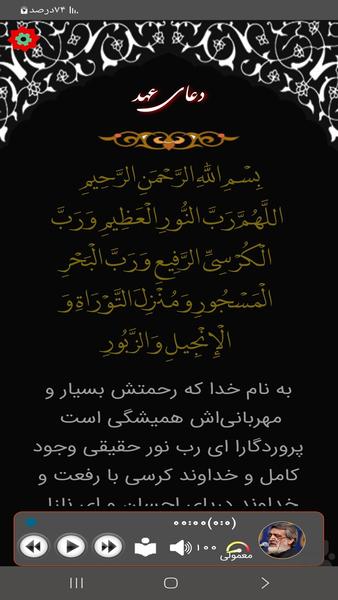 ۷۴درصد
دعای عهد
بِسْمِ اللَّهِ الرَّحْمَنِ الرَّحِيمِ
اللَّهُمَّ رَبَّ النُّورِ الْعَظِيمِ وَ رَبَّ
الْكُرْسِيِّ الرَّفِيعِ وَ رَبَّ الْبَحْرِ
الْمَسْجُورِ وَ مُنْزِلَ التَّوْرَاةِ وَ
الْإِنْجِيلِ وَ الزَّبُورِ
به نام خدا که رحمتش بسیار و
مهربانی‌اش همیشگی است
پروردگارا ای رب نور حقیقی وجود
کامل و خداوند کرسی با رفعت و
خداوند دریای احسان و ای
۰۰:۰۰(۰:۰)
۱۰۰
معمولی